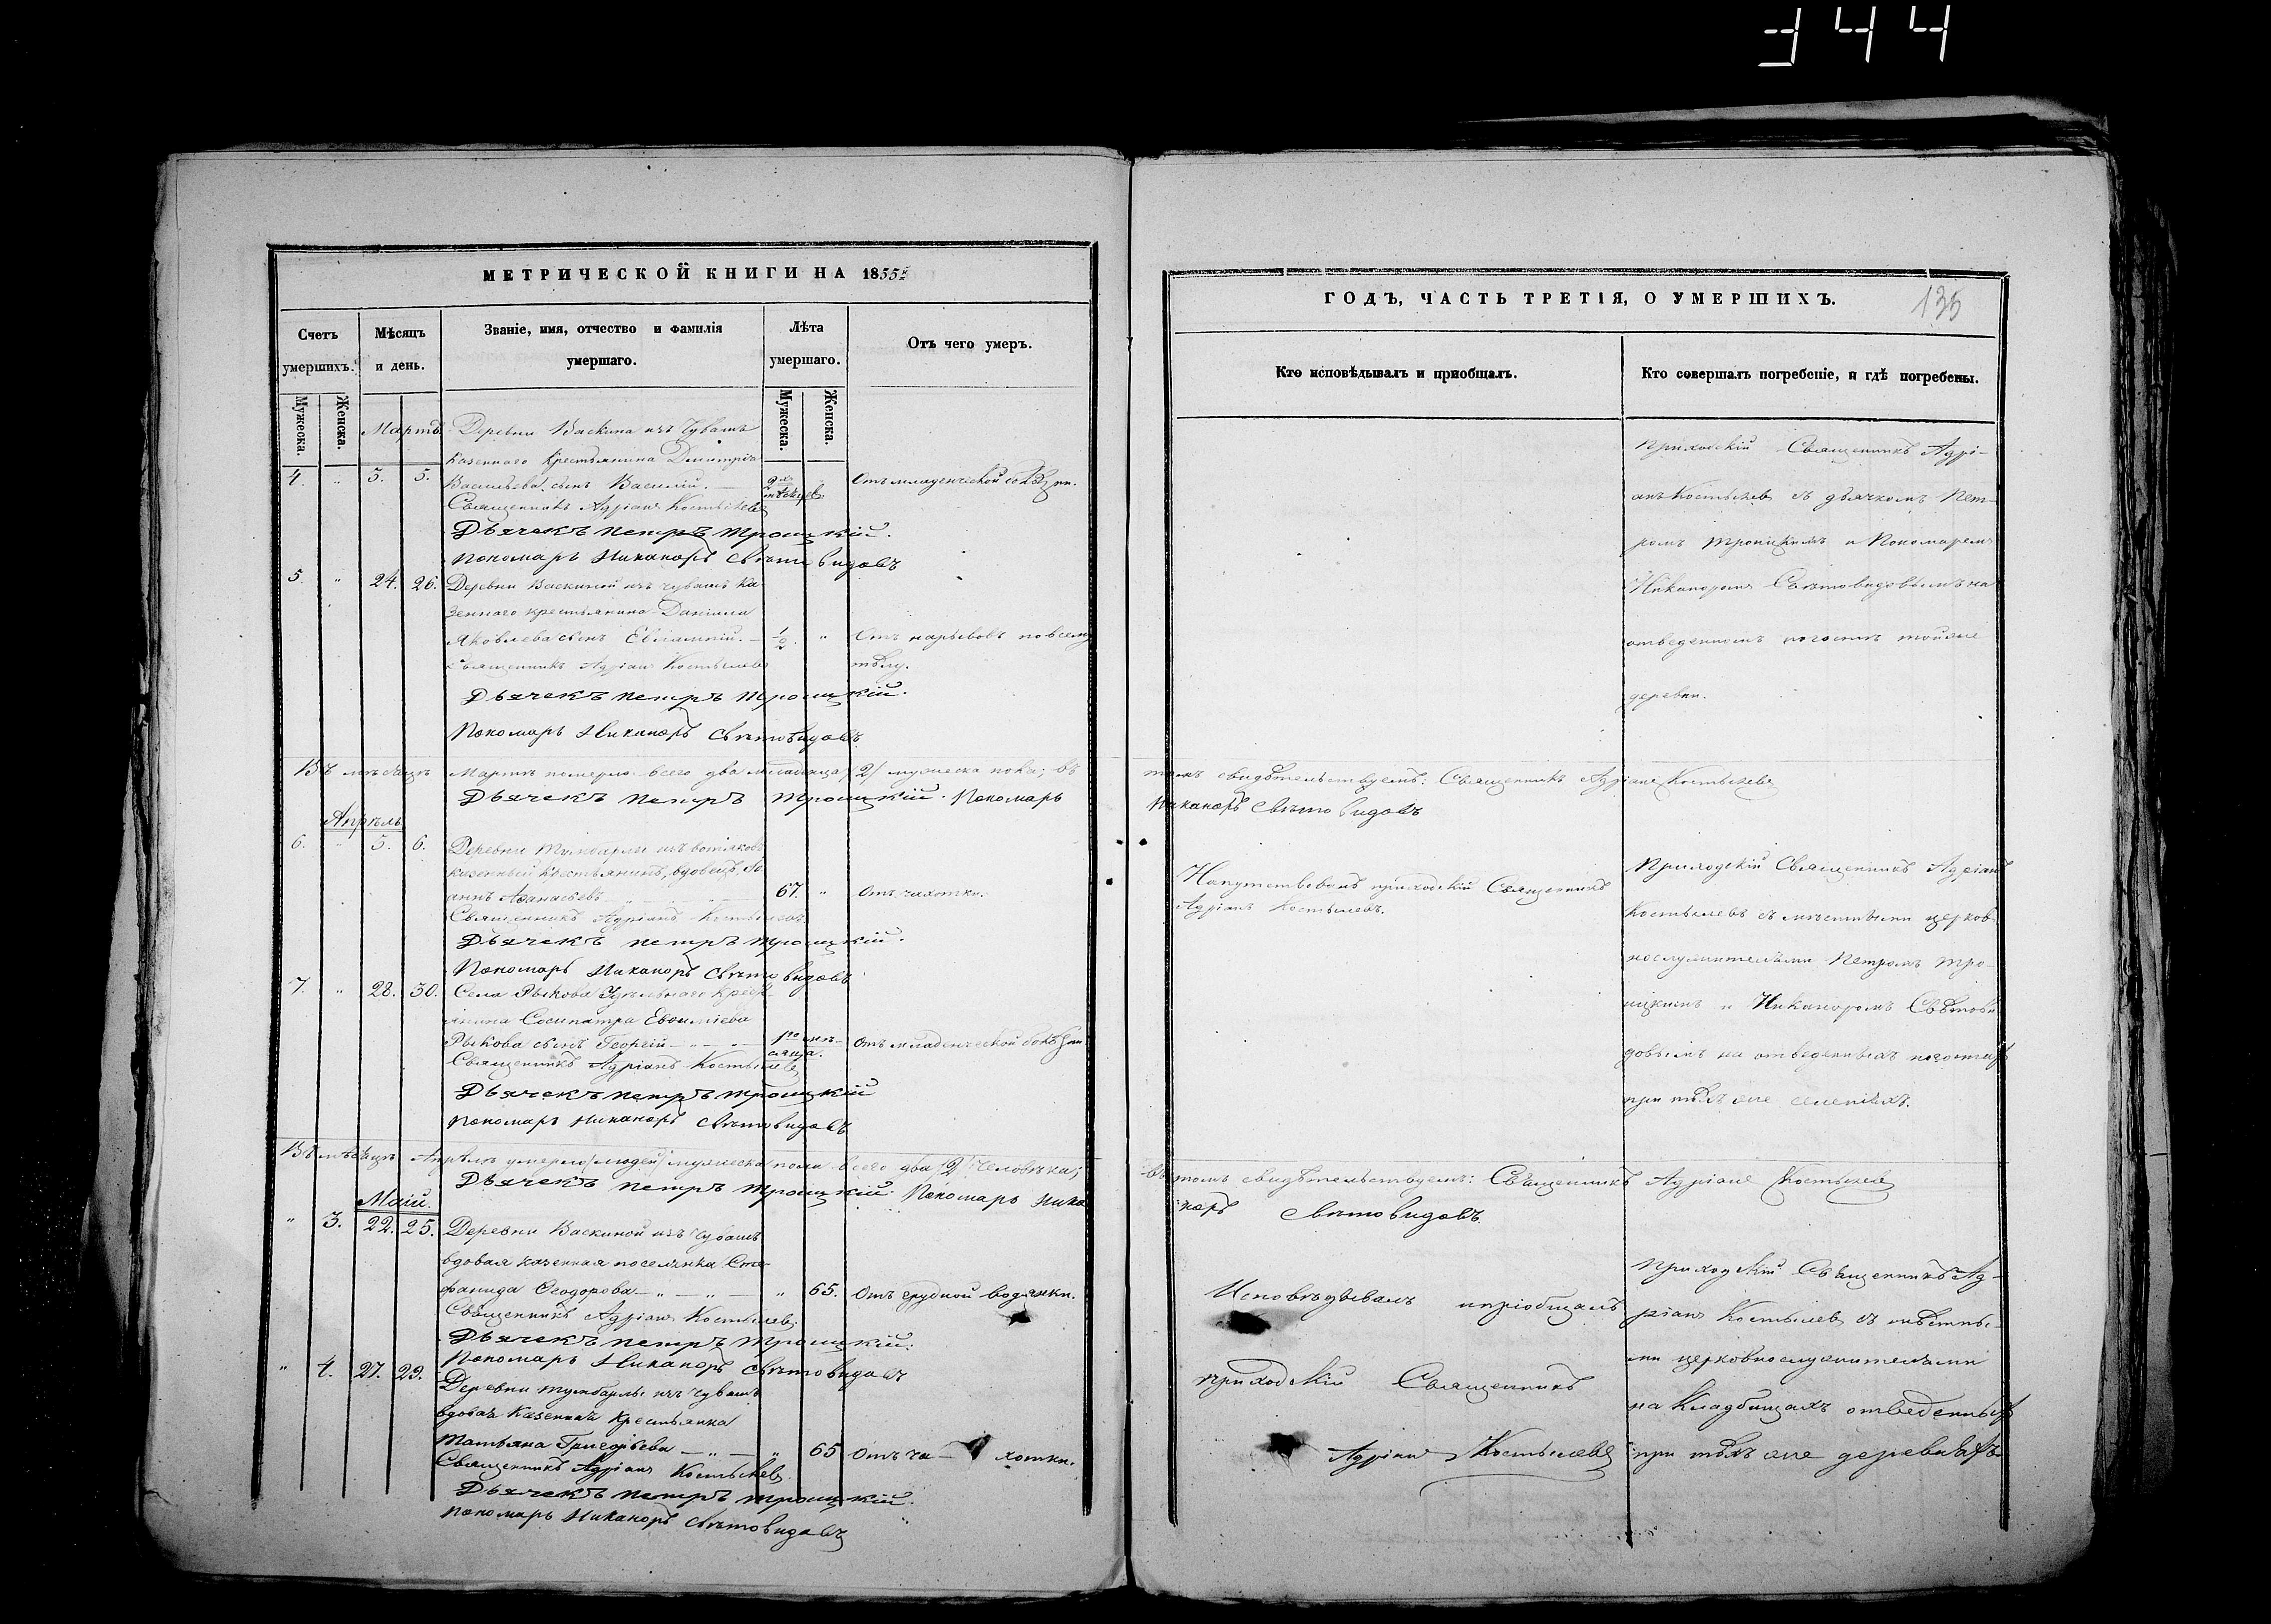 344
МЕТРИЧЕСКОЙ КНИГИ НА 1855й
Счетъ умершихъ.
Мѣсяцъ и день.
Званіе, имя, отчество и фамилія умершаго.
Лѣта умершаго.
Отъ чего умеръ.
Мужеска. Женска.
Мужеска. Женска.
Мартъ. Деревни Васкина изъ Чувашъ
казеннаго крестьянина Димитрія
4. " 3. 5. Васильева сынъ Василій. — 2хъ мѣсяцевъ Отъ младенческой болѣзни.
Священникъ Адріанъ Костылевъ
Дьячекъ Петръ Троицкій.
Пономарь Никаноръ Свѣтовидовъ
5. " 24. 26. Деревни Васкиной изъ чувашъ ка
зеннаго крестьянина Даніила
Яковлева сынъ Евлампій. — 1/2. " Отъ нарывовъ по всему
Священникъ Адріанъ Костылевъ тѣлу.
Дьячекъ Петръ Троицкій.
Пономарь Никаноръ Свѣтовидовъ.
Въ мѣсяцѣ Мартѣ померло всего два младенца /2/ мужеска пола; въ
Дьячекъ Петръ Троицкій. Пономарь
Апрѣль
6. " 5. 6. Деревни изъ вотяковъ
казенный крестьянинъ, вдовецъ, Іо
аннъ Аѳанасьевъ 67. " Отъ чахотки.
Священникъ Адріанъ Костылевъ.
Дьячекъ Петръ Троицкій.
Пономарь Никаноръ Свѣтовидовъ
7. " 28. 30. Села Рыкова Удѣльнаго крест
янина Сосипатра Евѳиміева
Рыкова сынъ Георгій — " — " — 1го мѣ-
сяца. Отъ младенческой болѣзни
Священникъ Адріанъ Костылевъ
Дьячекъ Петръ Троицкій
Пономарь Никаноръ Свѣтовидовъ
Въ мѣсяцѣ Апрѣлѣ умерло /людей/ мужеска пола всего два /2/ человѣка;
Дьячекъ Петръ Троицкій. Пономарь Ника
Маій.
" 3. 22. 25. Деревни Васкиной изъ Чувашъ
вдовая казенная поселянка Сте-
фанида Ѳеодорова — " — " — " 65. Отъ грудной водянки.
Священникъ Адріанъ Костылевъ.
Дьячекъ Петръ Троицкій.
Пономарь Никаноръ Свѣтовидовъ
" 4. 27. 29. Деревни изъ чувашъ
вдовая казенная крестьянка
Татьяна Григорьева — " — " 65 Отъ ча — хотки.
Священникъ Адріанъ Костылевъ.
Дьячекъ Петръ Троицкій.
Пономарь Никаноръ Свѣтовидовъ
ГОДЪ, ЧАСТЬ ТРЕТІЯ, О УМЕРШИХЪ.
135
Кто исповѣдывалъ и пріобщалъ.
Кто совершалъ погребеніе, и гдѣ погребены.
Приходскій Священникъ Адрі-
анъ Костылевъ съ дьячкомъ Пет-
ромъ Троицкимъ и Пономаремъ
Никаноромъ Свѣтовидовымъ на
отведенномъ погостѣ той же
деревни.
томъ свидѣтельствуемъ: Священникъ Адріанъ Костылевъ
Никаноръ Свѣтовидовъ
Напутствовалъ приходскій Священникъ
Адріанъ Костылевъ.
Приходскій Священникъ Адріанъ
Костылевъ съ мѣстными церков-
нослужителями Петромъ Тро-
ицкимъ и Никаноромъ Свѣтови
довымъ на отведенныхъ погостахъ
при тѣхъ же селеніяхъ.
въ томъ свидѣтельствуемъ: Священникъ Адріанъ Костылевъ
норъ Свѣтовидовъ.
Исповѣдывалъ и пріобщалъ
приходскій Священникъ
Адріанъ Костылевъ
Приходскій Священникъ Ад-
ріанъ Костылевъ съ мѣстны-
ми церковнослужителями
на кладбищахъ отведенныхъ
при тѣхъ же деревняхъ.